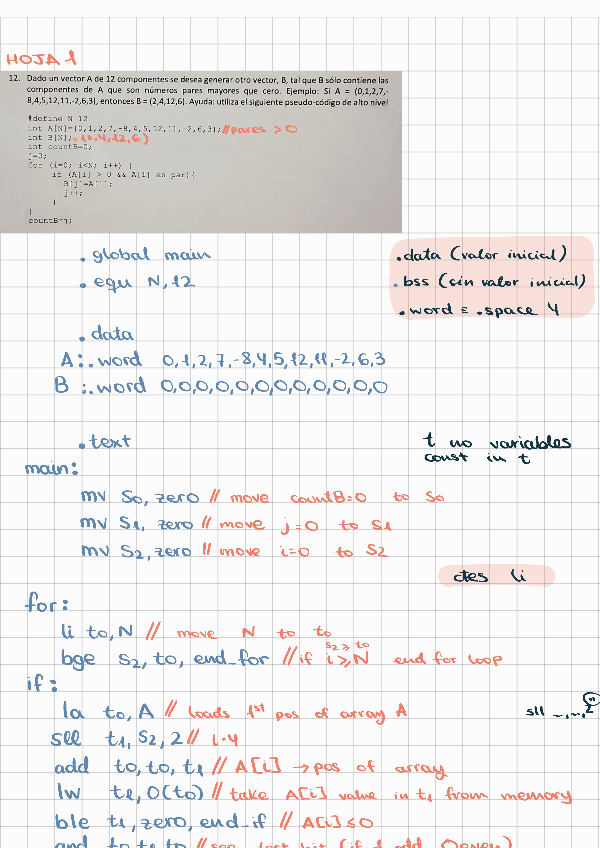 HOJA 1
12. Dado un vector A de 12 componentes se desea generar otro vector, B, tal que B sólo contiene las
componentes de A que son números pares mayores que cero. Ejemplo: Si A = (0,1,2,7,-
8,4,5,12,11,-2,6,3), entonces B = (2,4,12,6). Ayuda: utiliza el siguiente pseudo-código de alto nivel
#define N 12
int A[N]={0,1,2,7,-8,4,5,12,11,-2,6,3}; //pares > 0
int B[N]; = (2,4,12,6)
int countB=0;
j=0;
for (i=0; i<N; i++) {
if (A[i] > 0 && A[i] es par){
B[j]=A[i];
j++;
}
}
countB=j;
.global main
.equ N,12
.data (valor inicial)
.bss (sin valor inicial)
.word ≡ .space 4
.data
A:.word 0,1,2,7,-8,4,5,12,11,-2,6,3
B:.word 0,0,0,0,0,0,0,0,0,0,0,0
.text
t no variables
const in t
main:
mv S0, zero // move countB=0 to S0
mv S1, zero // move j=0 to S1
mv S2, zero // move i=0 to S2
ctes li
for:
li t0, N // move N to t0
s2 ≥ t0
bge S2, t0, end_for // if i≥N end for loop
if:
la t0, A // loads 1st pos of array A
sll t1, S2, 2 // i·4
sll _,_,2
add t0, t0, t1 // A[i] → pos of array
lw t1, 0(t0) // take A[i] value in t1 from memory
ble t1, zero, end_if // A[i]≤0